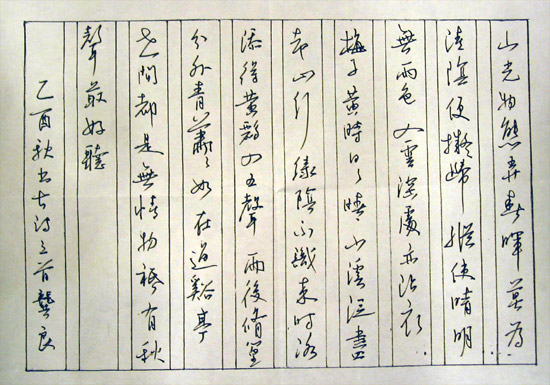 山光物態弄春暉 莫為
輕陰便擬歸 縱使晴明
無雨色 入雲深處亦沾衣
梅子黃時日々晴 小溪泛盡
却山行 綠陰不減來時路
添得黃鸝四五聲 雨後脩篁
分外青 蕭々如在過谿亭
世間都是無情物 祗有秋
聲最好聽
乙酉秋書古詩三首龔良